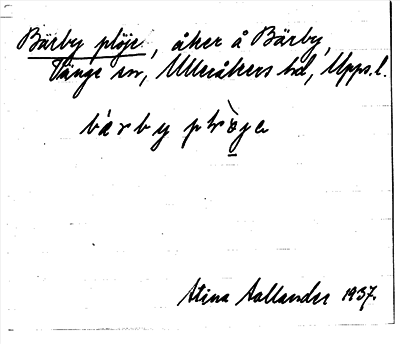 Bärby plöje, åker å Bärby,
Vänge sn, Ulleråkers hd, Upps. l.
bärby plöje
Stina Aallander 1937.